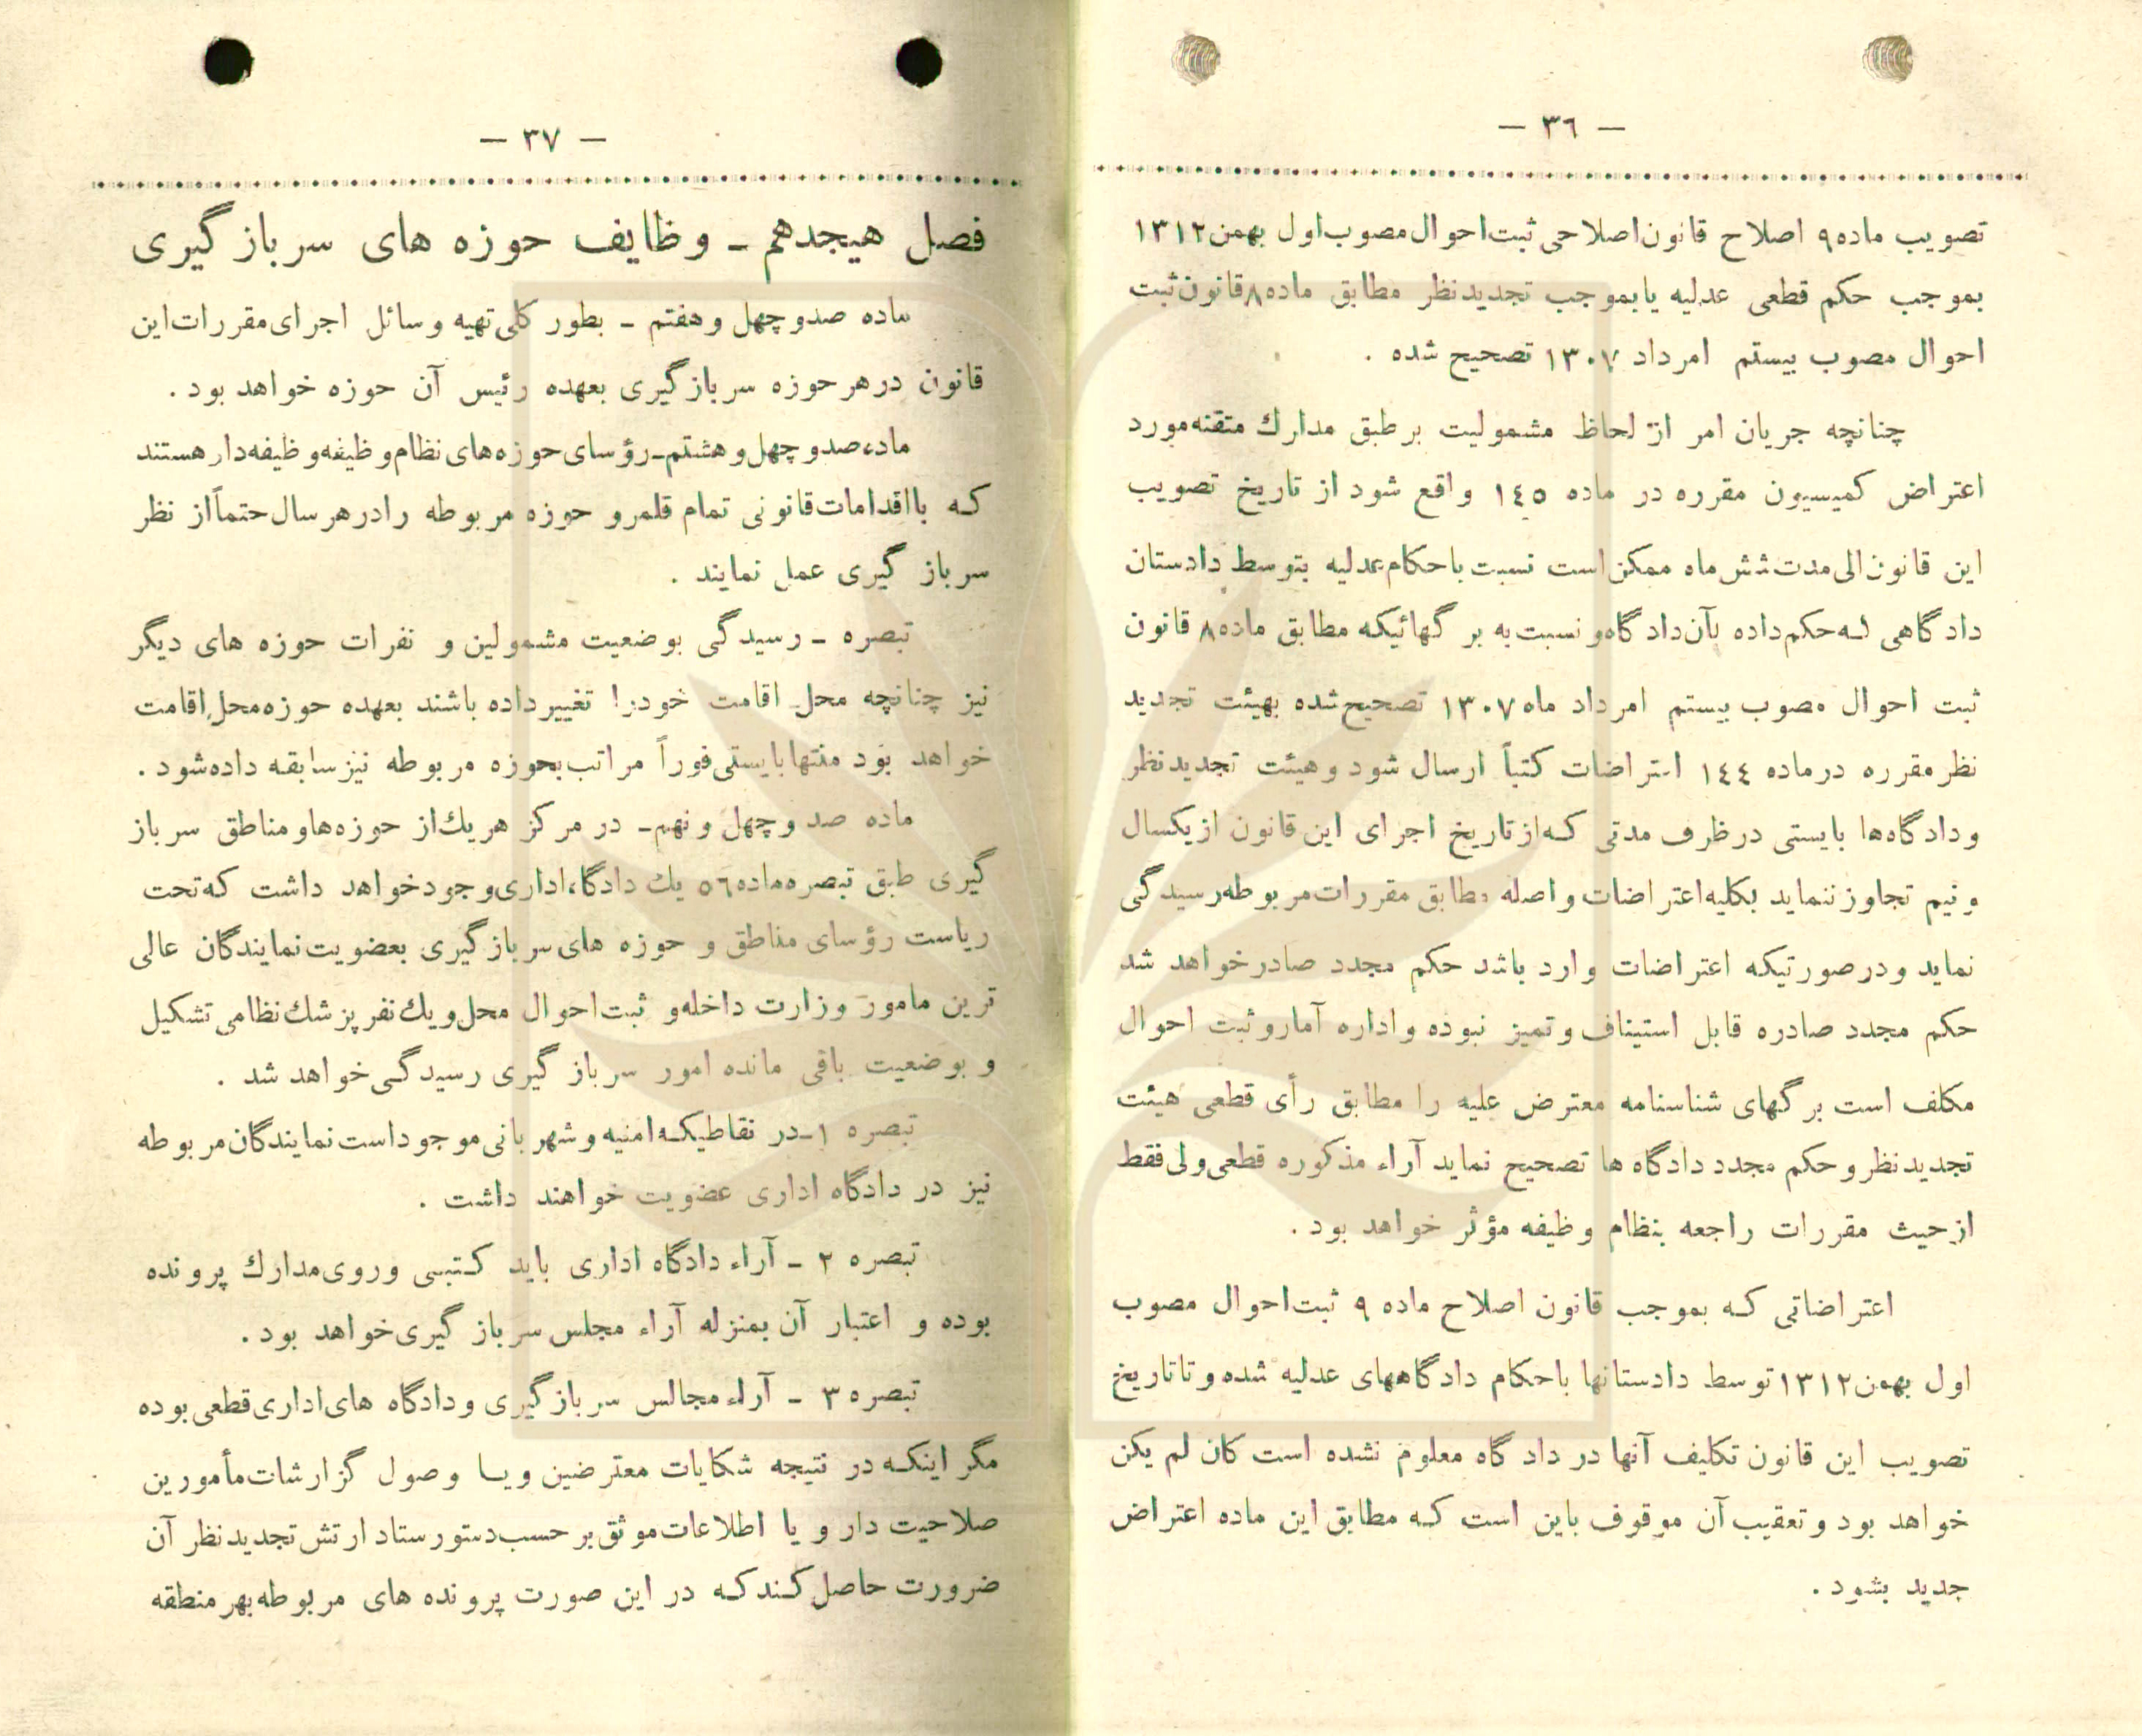 — ٣٦ —
تصویب ماده ٩ اصلاح قانون اصلاحی ثبت احوال مصوب اول بهمن ١٣١٢
بموجب حکم قطعی عدلیه یا بموجب تجدید نظر مطابق ماده ٨ قانون ثبت
احوال مصوب بیستم امرداد ١٣٠٧ تصحیح شده .
چنانچه جریان امر از لحاظ مشمولیت بر طبق مدارك متقنه مورد
اعتراض کمیسیون مقرره در ماده ١٤٥ واقع شود از تاریخ تصویب
این قانون الی مدت شش ماه ممکن است نسبت باحکام عدلیه بتوسط دادستان
دادگاهی که حکم داده بآن دادگاه و نسبت به برگهائیکه مطابق ماده ٨ قانون
ثبت احوال مصوب بیستم امرداد ماه ١٣٠٧ تصحیح شده بهیئت تجدید
نظر مقرره در ماده ١٤٤ اعتراضات کتباً ارسال شود و هیئت تجدید نظر
و دادگاه‌ها بایستی در ظرف مدتی که از تاریخ اجرای این قانون از یکسال
و نیم تجاوز ننماید بکلیه اعتراضات واصله مطابق مقررات مربوطه رسیدگی
نماید و در صورتیکه اعتراضات وارد باشد حکم مجدد صادر خواهد شد
حکم مجدد صادره قابل استیناف و تمیز نبوده و اداره آمار و ثبت احوال
مکلف است برگهای شناسنامه معترض علیه را مطابق رأی قطعی هیئت
تجدید نظر و حکم مجدد دادگاه ها تصحیح نماید آراء مذکوره قطعی ولی فقط
از حیث مقررات راجعه بنظام وظیفه مؤثر خواهد بود .
اعتراضاتی که بموجب قانون اصلاح ماده ٩ ثبت احوال مصوب
اول بهمن ١٣١٢ توسط دادستانها باحکام دادگاههای عدلیه شده و تا تاریخ
تصویب این قانون تکلیف آنها در دادگاه معلوم نشده است کان لم یکن
خواهد بود و تعقیب آن موقوف باین است که مطابق این ماده اعتراض
جدید بشود .
— ٣٧ —
فصل هیجدهم ـ وظایف حوزه های سرباز گیری
ماده صد و چهل و هفتم ـ بطور کلی تهیه وسائل اجرای مقررات این
قانون در هر حوزه سرباز گیری بعهده رئیس آن حوزه خواهد بود .
ماده صد و چهل و هشتم ـ رؤسای حوزه های نظام وظیفه وظیفه دار هستند
که با اقدامات قانونی تمام قلمرو حوزه مربوطه را در هر سال حتماً از نظر
سرباز گیری عمل نمایند .
تبصره ـ رسیدگی بوضعیت مشمولین و نفرات حوزه های دیگر
نیز چنانچه محل اقامت خود را تغییر داده باشند بعهده حوزه محل اقامت
خواهد بود منتها بایستی فوراً مراتب بحوزه مربوطه نیز سابقه داده شود .
ماده صد و چهل و نهم ـ در مرکز هر یك از حوزه‌ها و مناطق سرباز
گیری طبق تبصره ماده ٥٦ یك دادگاه اداری وجود خواهد داشت که تحت
ریاست رؤسای مناطق و حوزه های سرباز گیری بعضویت نمایندگان عالی
ترین مامور وزارت داخله و ثبت احوال محل و یك نفر پزشك نظامی تشکیل
و بوضعیت باقی مانده امور سرباز گیری رسیدگی خواهد شد .
تبصره ١ ـ در نقاطیکه امنیه و شهربانی موجود است نمایندگان مربوطه
نیز در دادگاه اداری عضویت خواهند داشت .
تبصره ٢ ـ آراء دادگاه اداری باید کتبی و روی مدارك پرونده
بوده و اعتبار آن بمنزله آراء مجلس سرباز گیری خواهد بود .
تبصره ٣ ـ آراء مجالس سرباز گیری و دادگاه های اداری قطعی بوده
مگر اینکه در نتیجه شکایات معترضین و یا وصول گزارشات مأمورین
صلاحیت دار و یا اطلاعات موثق بر حسب دستور ستاد ارتش تجدید نظر آن
ضرورت حاصل کند که در این صورت پرونده های مربوطه بهر منطقه